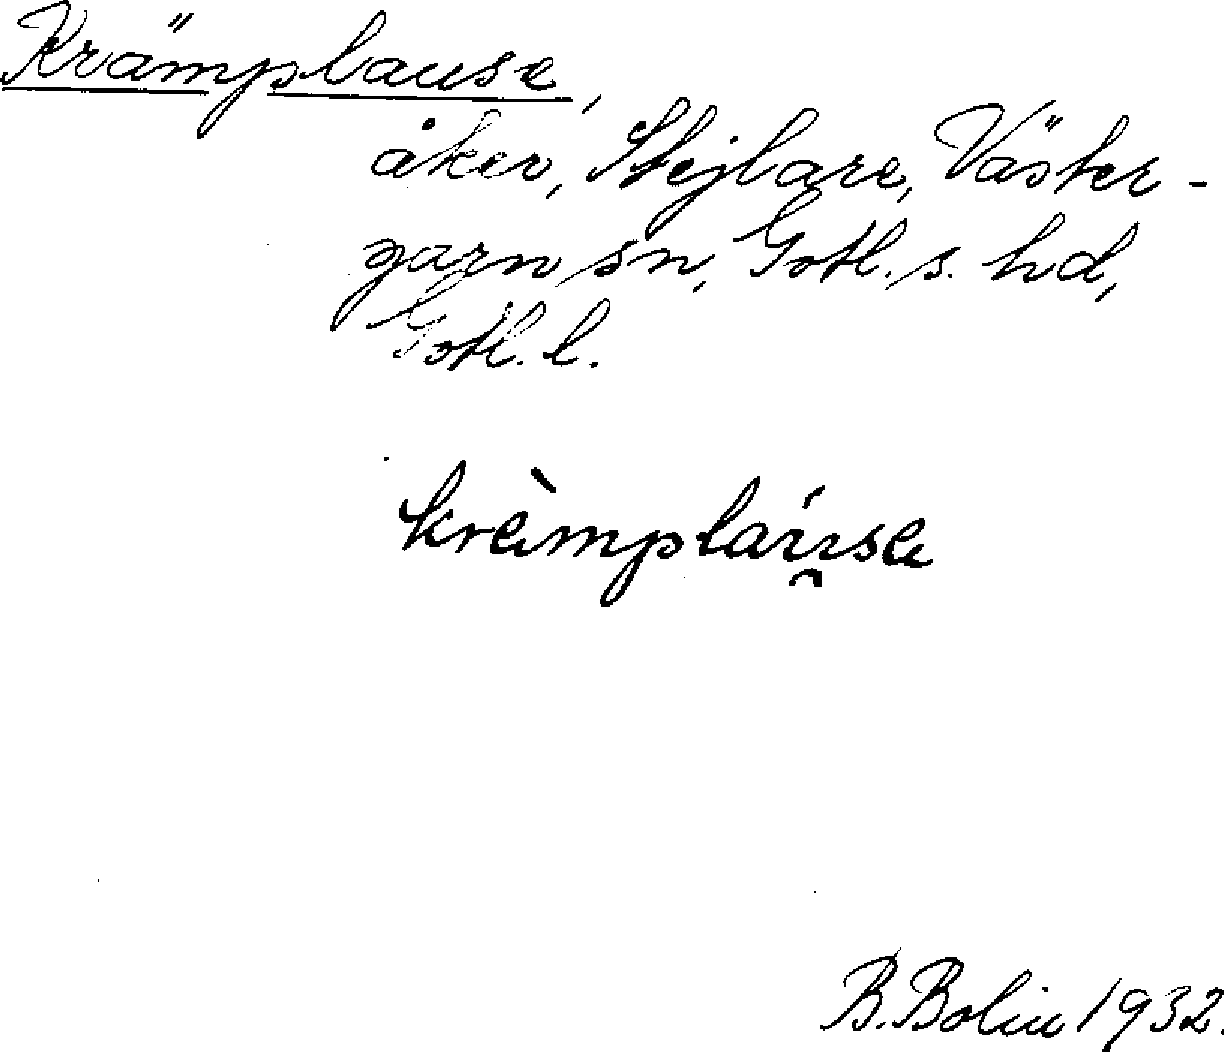 Krämplause,
åker, Stejlare, Väster-
garn sn, Gotl. s. hd,
Gotl. l.
krèmplàu̯sa
B. Bolin 1932.